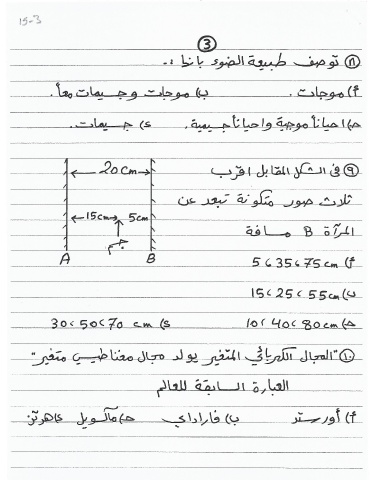 15-3
③
٨) توصف طبيعة الضوء بانها :-
أ) موجات. ب) موجات وجسيمات معاً.
حـ) احياناً موجية واحياناً جسيمية. ء) جسيمات.
٩) فى الشكل المقابل اقرب
ثلاث صور متكونة تبعد عن
المرآة B مسافة
20cm
15cm 5cm
جسم
A B
أ) 5، 35، 75 cm
ب) 15، 25، 55 cm
حـ) 10، 40، 80 cm ء) 30، 50، 70 cm
١٠) "المجال الكهربائي المتغير يولد مجال مغناطيسي متغير"
العبارة السابقة للعالم
أ) أورستد ب) فاراداي حـ) ماكسويل ء) هرتز